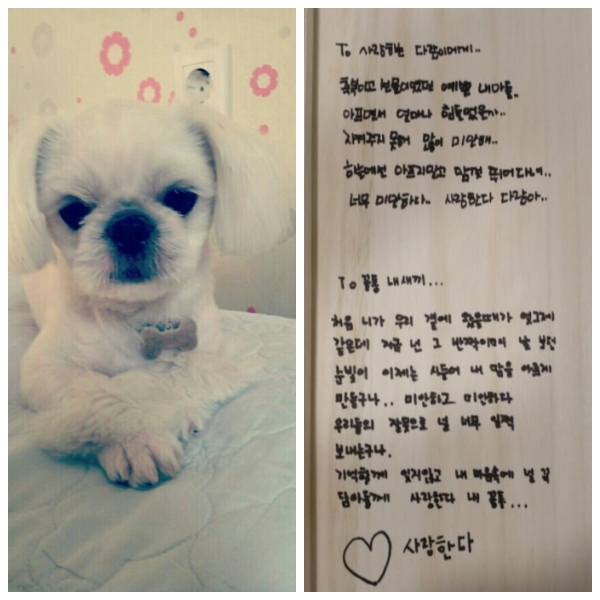 To 사랑하는 다랑이에게..
축복이고 선물이었던 예쁜 내아들..
아프면서 얼마나 힘들었을까..
지켜주지 못해 많이 미안해..
하늘에선 아프지말고 맘껏 뛰어다녀..
너무 미안하다.. 사랑한다 다랑아..
To 꼴통 내새끼...
처음 니가 우리 곁에 왔을때가 엊그제
같은데 지금 넌 그 반짝이며 날 보던
눈빛이 이제는 시들어 내 맘을 아프게
만들구나.. 미안하고 미안하다
우리들의 잘못으로 널 너무 일찍
보내는구나.
기억할게 잊지않고 내 마음속에 널 꼭
담아둘게 사랑한다 내 꼴통...
사랑한다